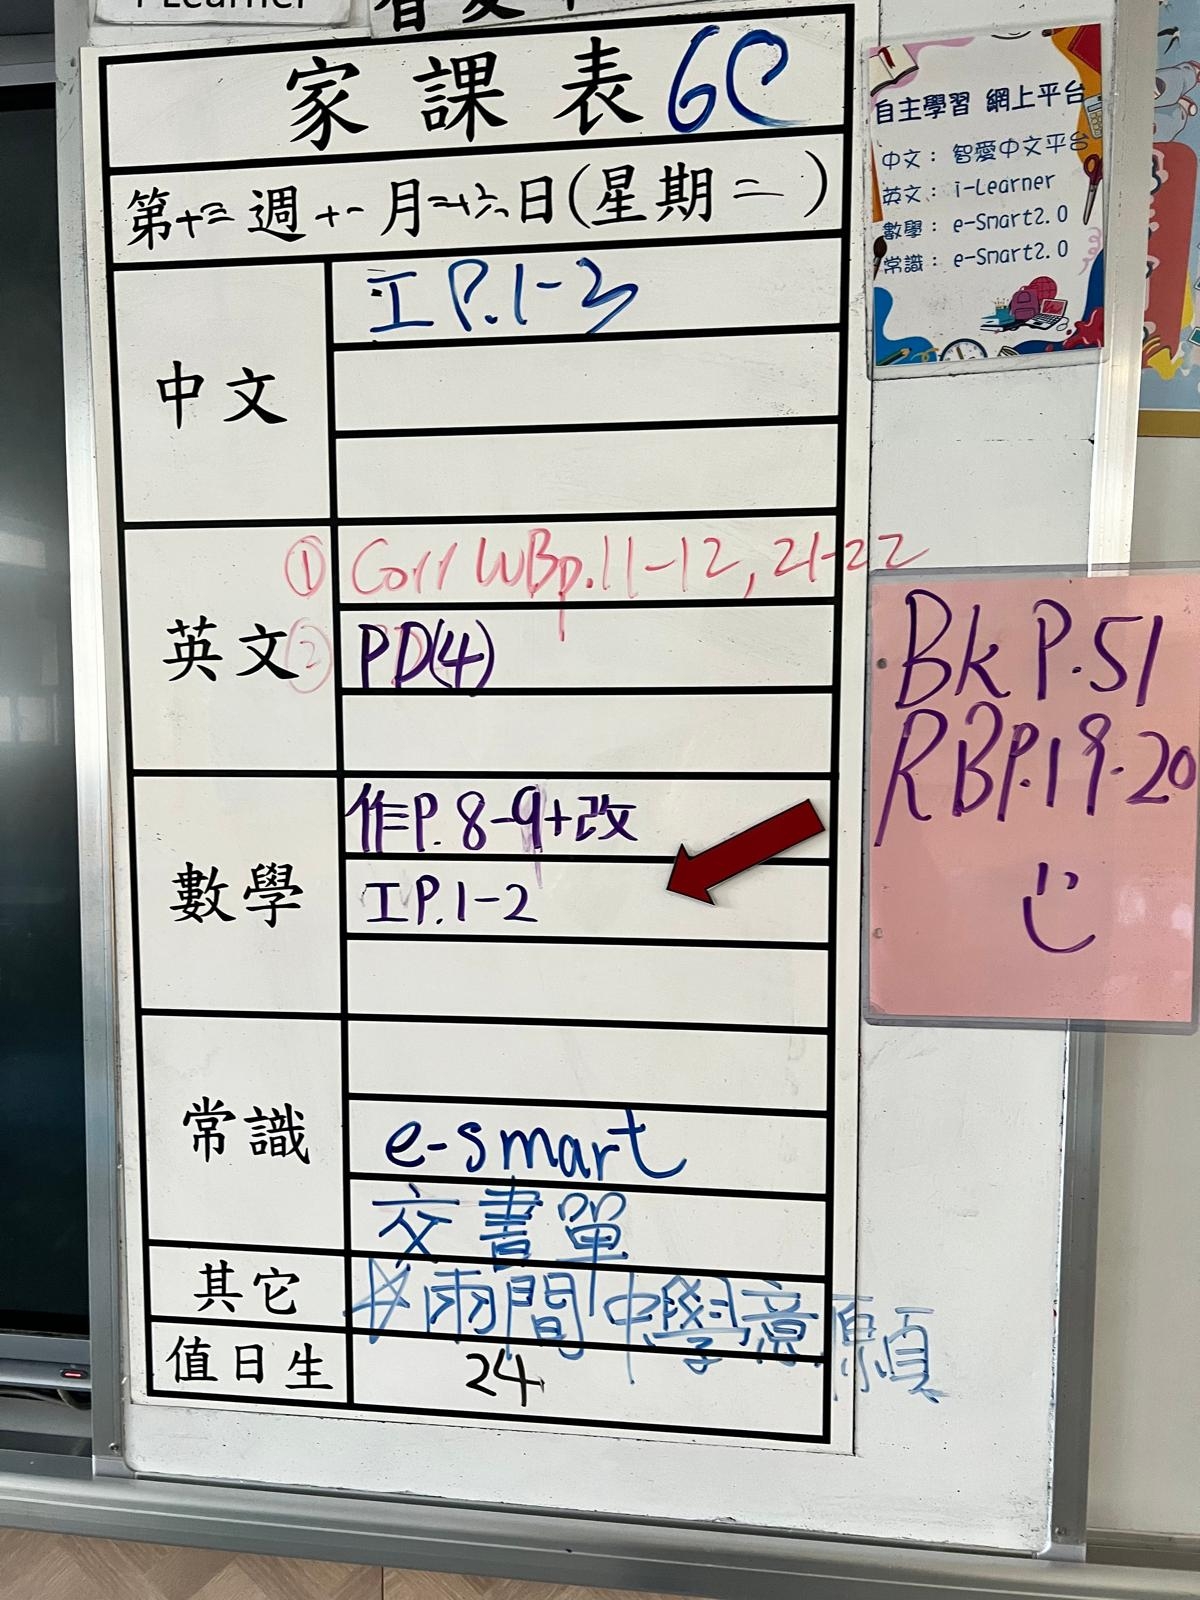 i-Learner
家課表 6C
第十三週十一月二十六日(星期二)
中文
工 P.1-3
英文
① Corr WBp.11-12, 21-22
② PD(4)
數學
作P.8-9+改
工P.1-2
常識
e-smart
交書單
其它
☆兩間中學意願
值日生
24
自主學習 網上平台
中文：智愛中文平台
英文：i-Learner
數學：e-Smart2.0
常識：e-Smart2.0
Bk P.51
RBP.19-20